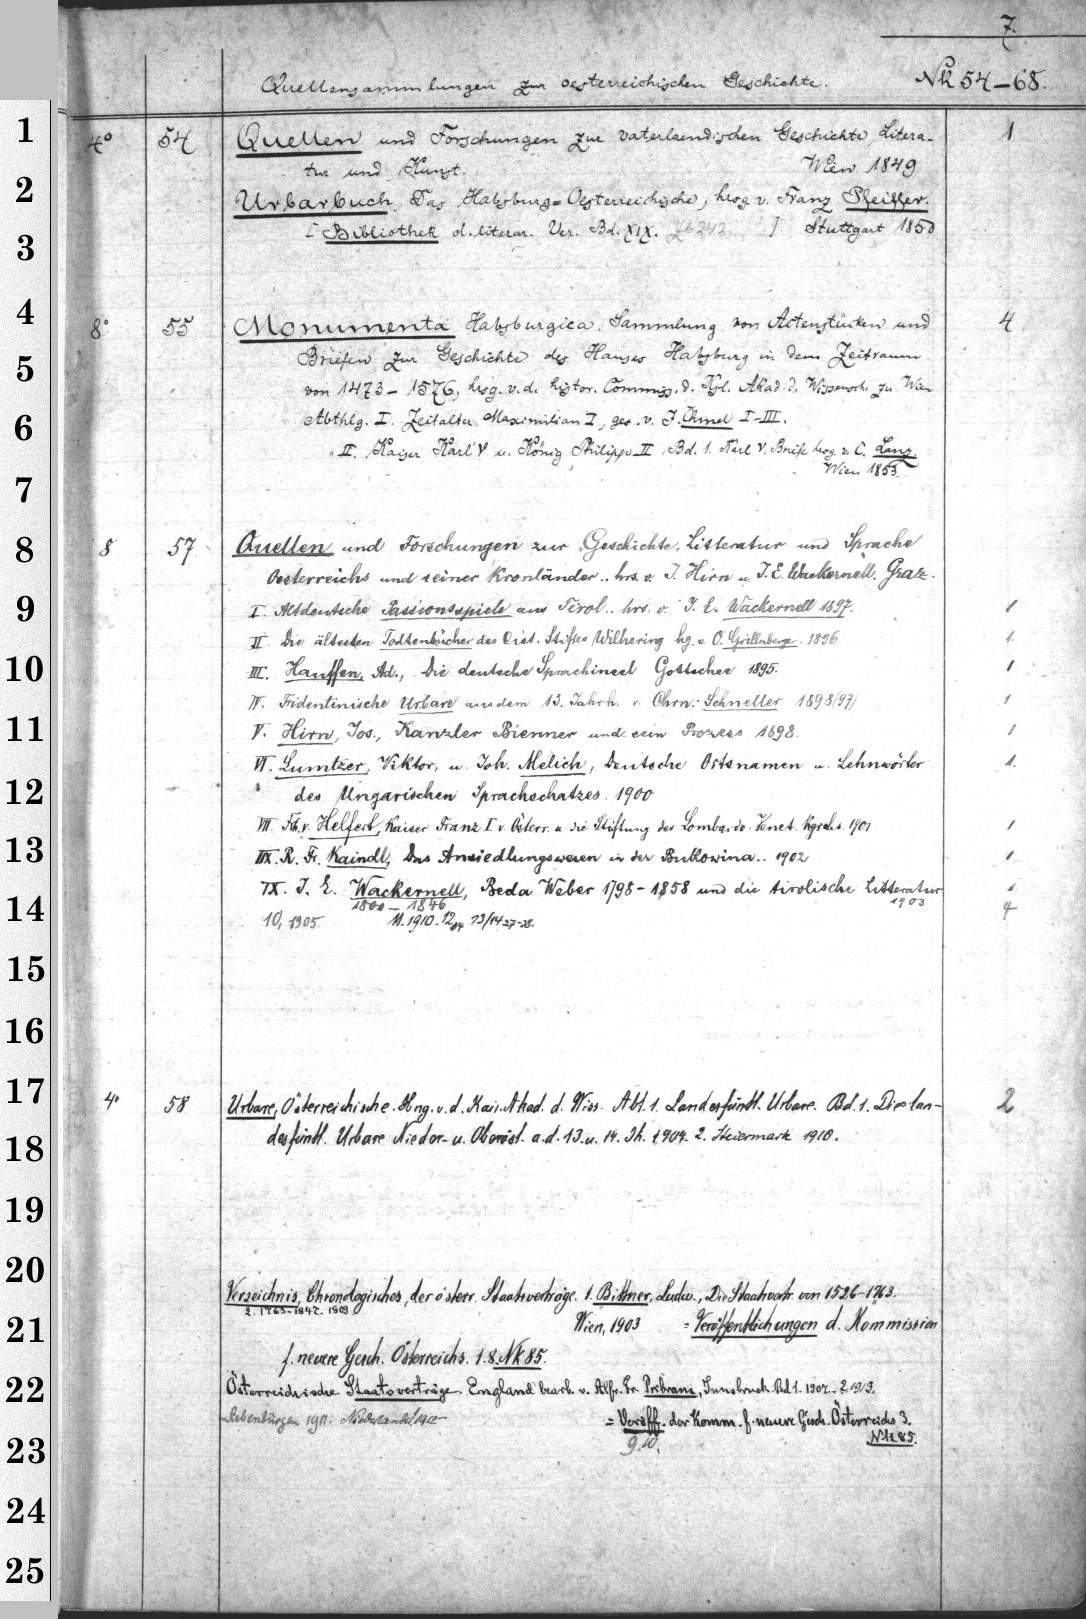 7.
Quellensammlungen zur oesterreichischen Geschichte. Nk 54-68.
1
4° 54 Quellen und Forschungen zur vaterlaendischen Geschichte, Litera- 1
tur und Kunst. Wien 1849
2
Urbarbuch, Das Habsburg=Oesterreichische, hrsg. v. Franz Pfeiffer.
3
[Bibliothek d. literar. Ver. Bd. XIX. ] Stuttgart 1850
4
8° 55 Monumenta Habsburgica. Sammlung von Actenstücken und 4
5
Briefen zur Geschichte des Hauses Habsburg in dem Zeitraum
von 1473-1576, hrsg. v. d. histor. Commiss. d. Ksl. Akad. d. Wissensch. zu Wien
6
Abthlg. I. Zeitalter Maximilian I, ges. v. J. Chmel I-III.
" II. Kaiser Karl V u. König Philipp II, Bd. 1. Karl V. Briefe hrsg. v. C. Lanz.
Wien 1853.
7
8
8 57 Quellen und Forschungen zur Geschichte, Litteratur und Sprache
Oesterreichs und seiner Kronländer.. hrs. v. J. Hirn u. J. E. Wackernell. Graz.
9
I. Altdeutsche Passionsspiele aus Tirol.. hrs. v. J. E. Wackernell 1897. 1
II. Die ältesten Todtenbücher des Cist. Stiftes Wilhering hg. v. O. Grillnberger. 1896 1.
10
III. Hauffen, Ad., Die deutsche Sprachinsel Gottschee 1895. 1
IV. Tridentinische Urbare aus dem 13. Jahrh. v. Chrn: Schneller 1898(97) 1
11
V. Hirn, Jos., Kanzler Bienner und sein Prozess 1898. 1
VI. Lumtzer, Viktor, u. Joh. Melich, Deutsche Ortsnamen u. Lehnwörter 1.
12
des Ungarischen Sprachschatzes. 1900
VII. Fh. v. Helfert, Kaiser Franz I v. Österr. u. die Stiftung des Lombardo-Venet. Kgrchs. 1901 1
13
IIX. R. Fr. Kaindl, Das Ansiedlungswesen in der Bukowina.. 1902 1
IX. J. E. Wackernell, Beda Weber 1798-1858 und die tirolische Litteratur 1
14
1800-1846 1903 4
10, 1905. 11. 1910. 12 13/14 27-28.
15
16
17
4° 58 Urbare, Österreichische. Hrsg. v. d. Kais. Akad. d. Wiss. Abt. 1. Landesfürstl. Urbare. Bd. 1. Die lan- 2
desfürstl. Urbare Nieder- u. Oberöst. a. d. 13. u. 14. Jh. 1904. 2. Steiermark 1910.
18
19
20
Verzeichnis, Chronologisches, der österr. Staatsverträge. 1. Bittner, Ludw., Die Staatsvertr. von 1526-1763.
2. 1763-1847. 1909
21
Wien, 1903 = Veröffentlichungen d. Kommission
f. neuere Gesch. Österreichs. 1. 8. Nk 85.
22
Österreichische Staatsverträge. England bearb. v. Alfr. Fr. Pribram, Innsbruck. Bd 1. 1907. 2. 1913.
Siebenbürgen 1911. Niederlande 1912 = Veröff. der Komm. f. neuere Gesch. Österreichs 3.
23
9. 10. Nk 85.
24
25